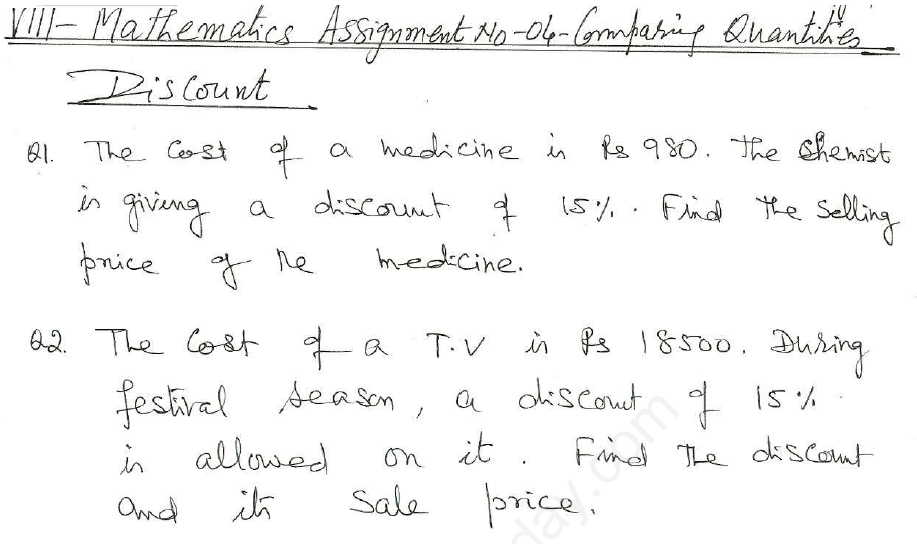 VIII- Mathematics Assignment No-04-Comparing Quantities
Discount
Q1. The Cost of a medicine is Rs 980. The Chemist
is giving a discount of 15%. Find the Selling
price of the medicine.
Q2. The Cost of a T.V is Rs 18500. During
festival season, a discount of 15%
is allowed on it. Find The discount
and its Sale price.
day.com